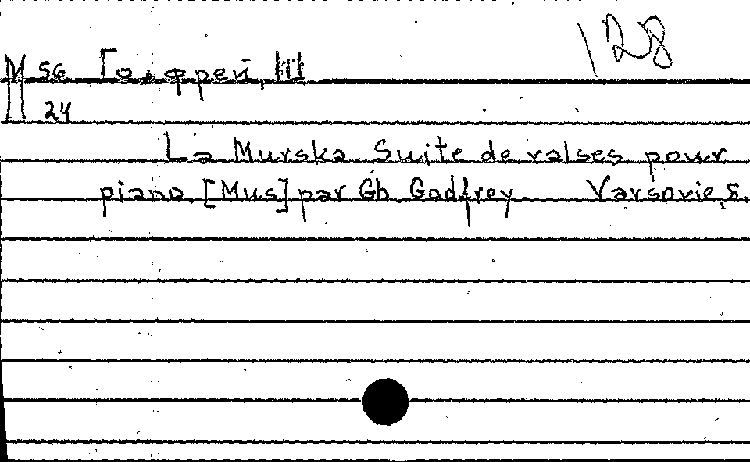 128
М 56 Годфрей, Ш
24
La Murska Suite de valses pour
piano [Mus] par Ch Godfrey Varsovie, s.